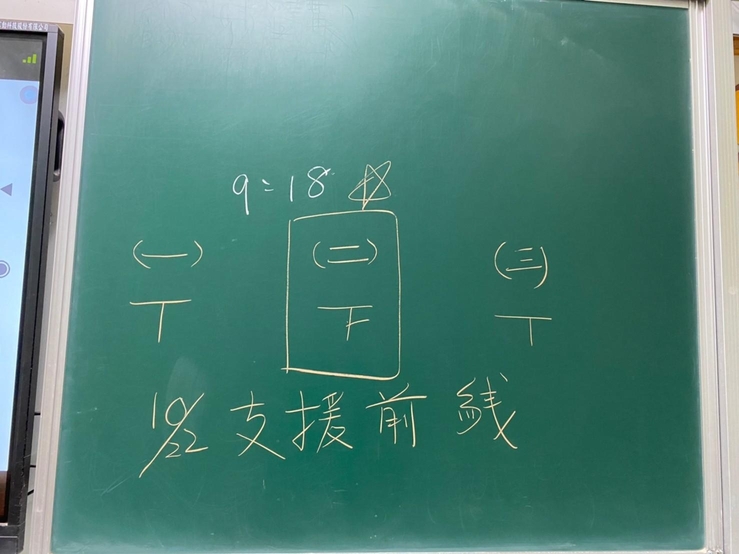 9:18
(一) (二) (三)
10/22 支援前綫